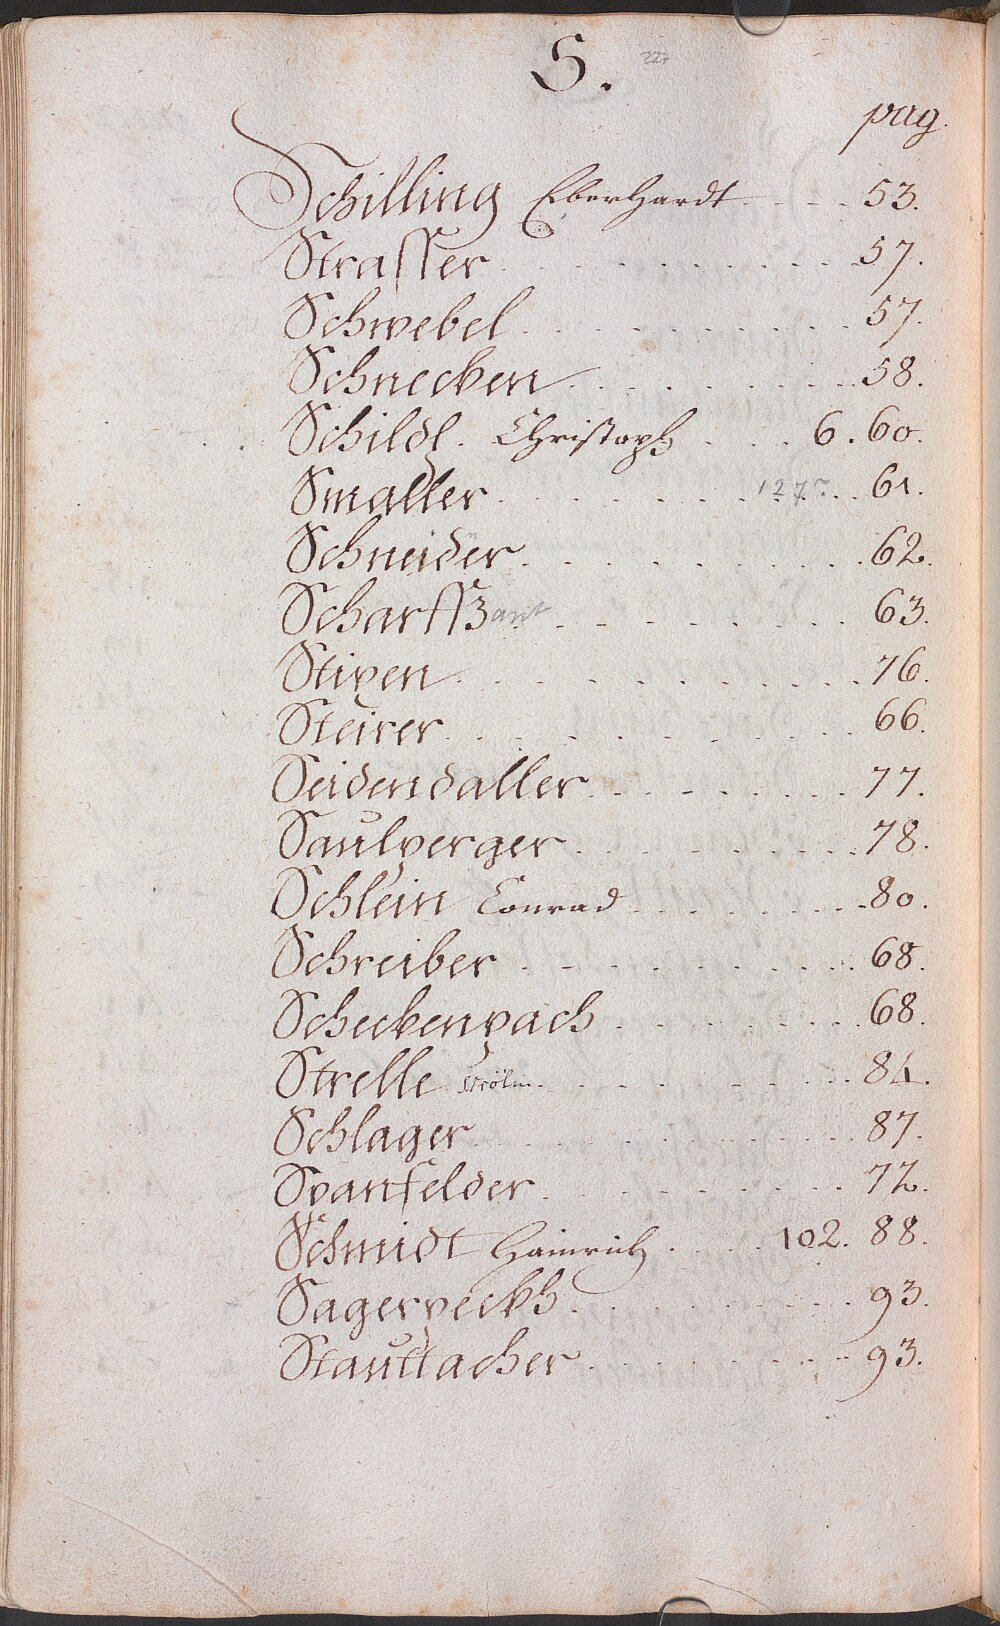 S.
pag.
Schilling Eberhardt . . . . 53.
Strasser . . . . . . . . . . 57.
Schwebel . . . . . . . . . . 57.
Schnecken . . . . . . . . . 58.
Schildl. Christoph . . . 6. 60.
Smaller . . . . . . . 127r . . 61.
Schneider . . . . . . . . . 62.
Scharffzant . . . . . . . . 63.
Stipen . . . . . . . . . . . 76.
Steirer . . . . . . . . . . . 66.
Seidendaller . . . . . . . . 77.
Saulperger . . . . . . . . . 78.
Schlein Conrad . . . . . . . 80.
Schreiber . . . . . . . . . 68.
Scheckenpach . . . . . . . . 68.
Strelle Strölin . . . . . . . 84.
Schlager . . . . . . . . . . 87.
Spanfelder . . . . . . . . . 72.
Schmidt Hainrich . . . . 102. 88.
Sagerpeckh . . . . . . . . . 93.
Stauttacher . . . . . . . . . 93.